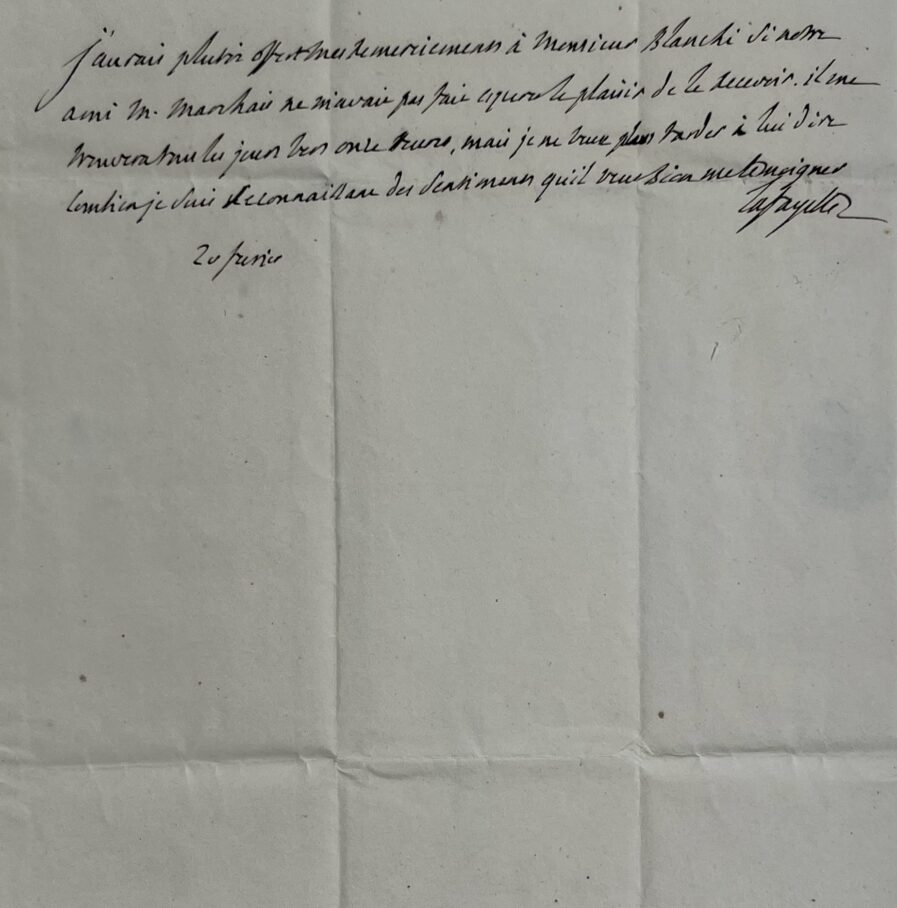 j'aurais plutôt offert mes remerciemens à Monsieur Blanchi si notre
ami M. Marchais ne m'avait pas fait esperer le plaisir de le recevoir. il me
trouvera tous les jours vers onze heures, mais je ne veux pas tarder à lui dire
combien je suis reconnaissant des sentimens qu'il veut bien me temoigner
Lafayette
20 fevrier